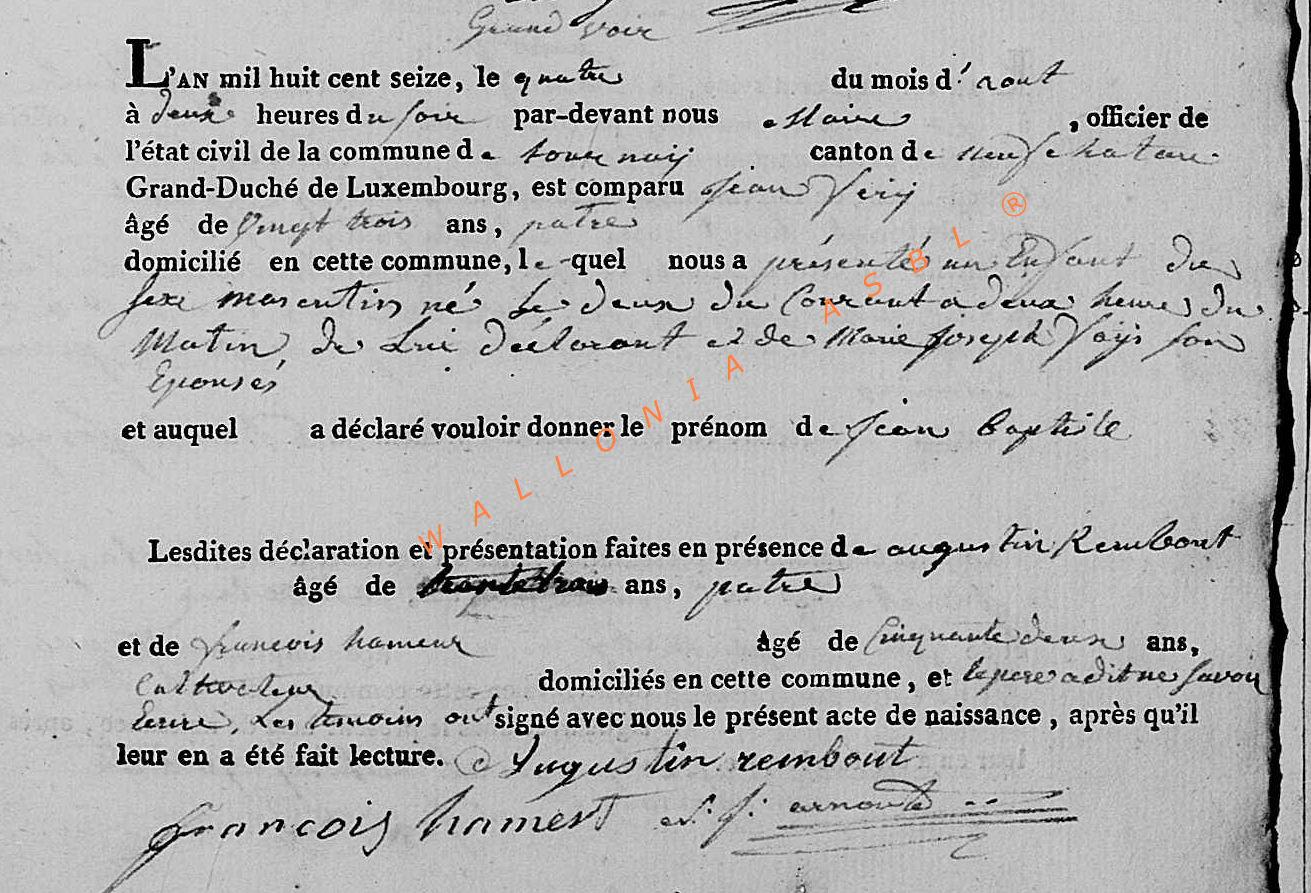 Grand voir
L'AN mil huit cent seize, le quatre du mois d'aout
à deux heures du soir par-devant nous Maire, officier de
l'état civil de la commune de tournay canton de neufchatau
Grand-Duché de Luxembourg, est comparu Jean
âgé de Vingt trois ans, patre
domicilié en cette commune, le-quel nous a présenté un Enfant du
sexe masculin né le deux du Courant a deux heures du
Matin, de Lui déclarant et de Marie Joseph son
Epouse
et auquel a déclaré vouloir donner le prénom de Jean Baptiste
Lesdites déclaration et présentation faites en présence de augustin Rembout
âgé de ans, patre
et de francois hameur âgé de Cinquante deux ans,
Cultivateur, domiciliés en cette commune, et le pere a dit ne savoir
Ecrire, Les temoins ont signé avec nous le présent acte de naissance, après qu'il
leur en a été fait lecture. Augustin rembout
francois hamert arnould
WALLONIA ASBL ®